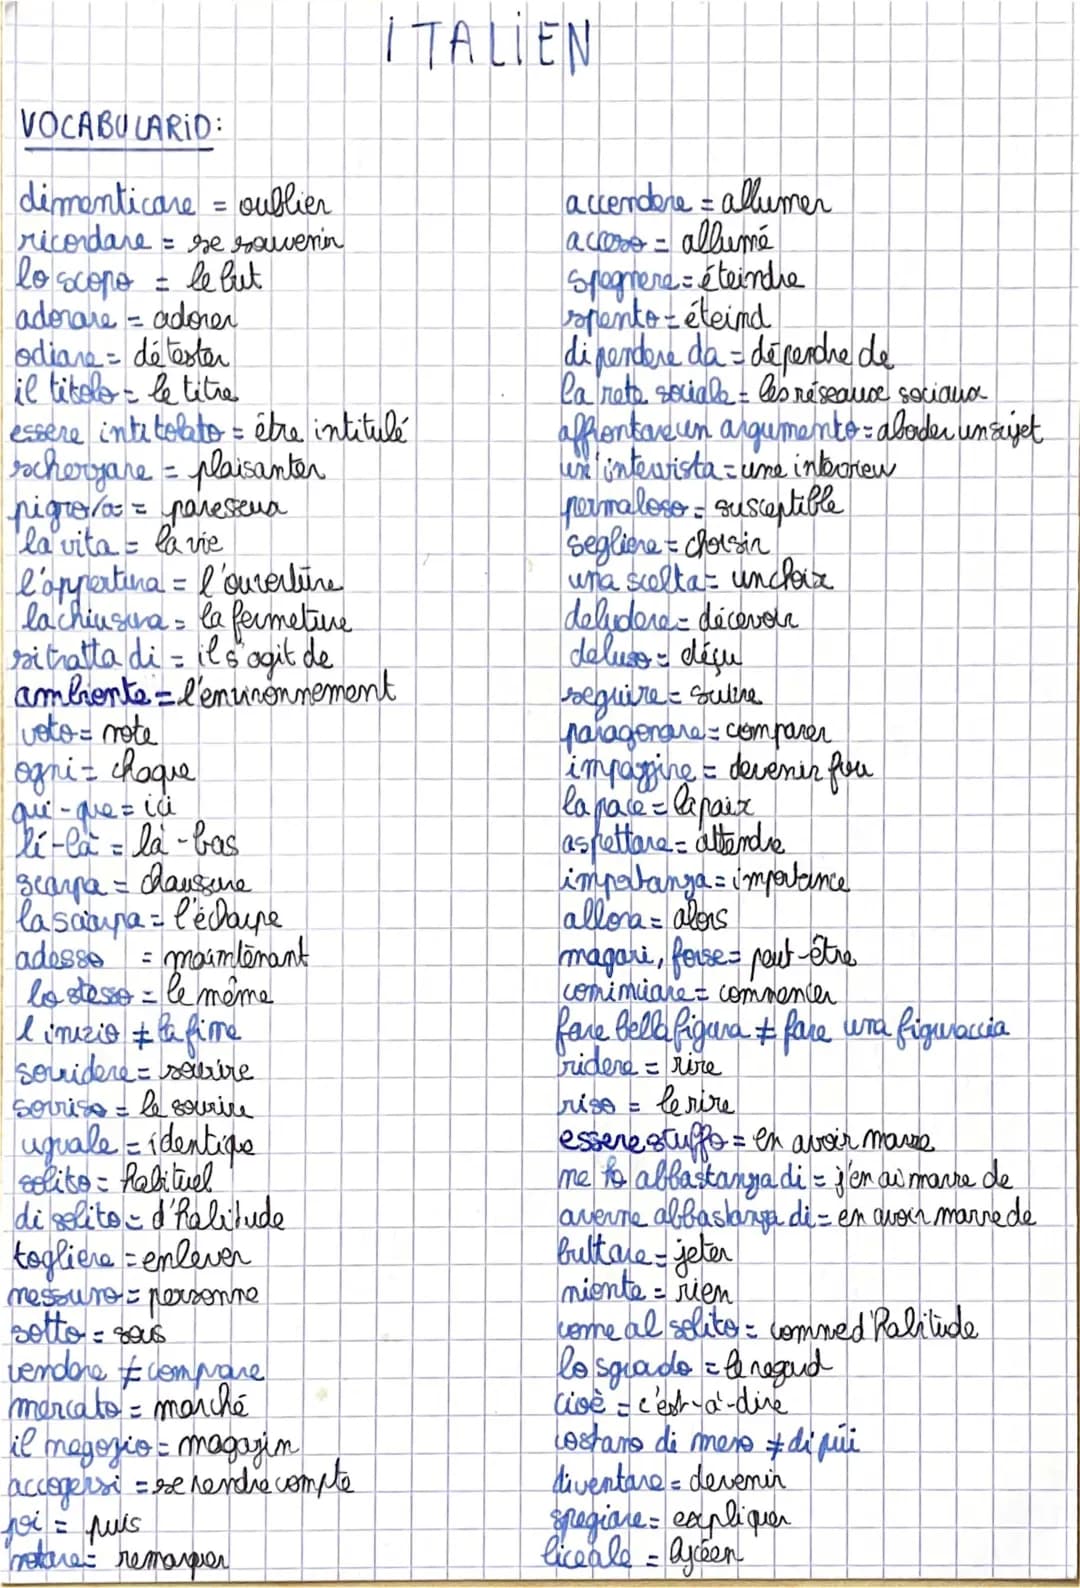 ITALIEN
VOCABULARIO:
dimenticare = oublier
ricordare = se souvenir
lo scopo = le but
adorare = adorer
odiare = détester
il titolo = le titre
essere intitolato = être intitulé
scherzare = plaisanter
pigro/a = paresseux
la vita = la vie
l'appertura = l'ouverture
la chiusura = la fermeture
si tratta di = il s'agit de
ambiente = l'environnement
voto = note
ogni = chaque
qui - que = ici
lí-là = là-bas
scarpa = chaussure
la sciarpa = l'écharpe
adesso = maintenant
lo stesso = le même
l'inizio ≠ la fine
sorridere = sourire
sorriso = le sourire
uguale = identique
solito = habituel
di solito = d'habitude
togliere = enlever
nessuno = personne
sotto = sous
vendere ≠ comprare
mercato = marché
il negozio = magazin
accogersi = se rendre compte
poi = puis
notare = remarquer
accendere = allumer
acceso = allumé
spegnere = éteindre
spento = éteind
dipendere da = dépendre de
la rete sociale = les réseaux sociaux
affrontare un argumento = aborder un sujet
un'intervista = une interview
permaloso = susceptible
segliere = choisir
una scelta = un choix
deludere = décevoir
deluso = déçu
seguire = suivre
paragonare = comparer
impazzire = devenir fou
la pace = la paix
aspettare = attendre
importanza = importance
allora = alors
magari, forse = peut-être
cominciare = commencer
fare bella figura ≠ fare una figuraccia
ridere = rire
riso = le rire
essere stuffo = en avoir marre
me ho abbastanza di = j'en ai marre de
averne abbastanza di = en avoir marre de
buttare = jeter
niente = rien
come al solito = comme d'habitude
lo sguado = le regard
cioè = c'est-à-dire
costano di meno ≠ di púi
diventare = devenir
spegiare = expliquer
liceale = lycéen